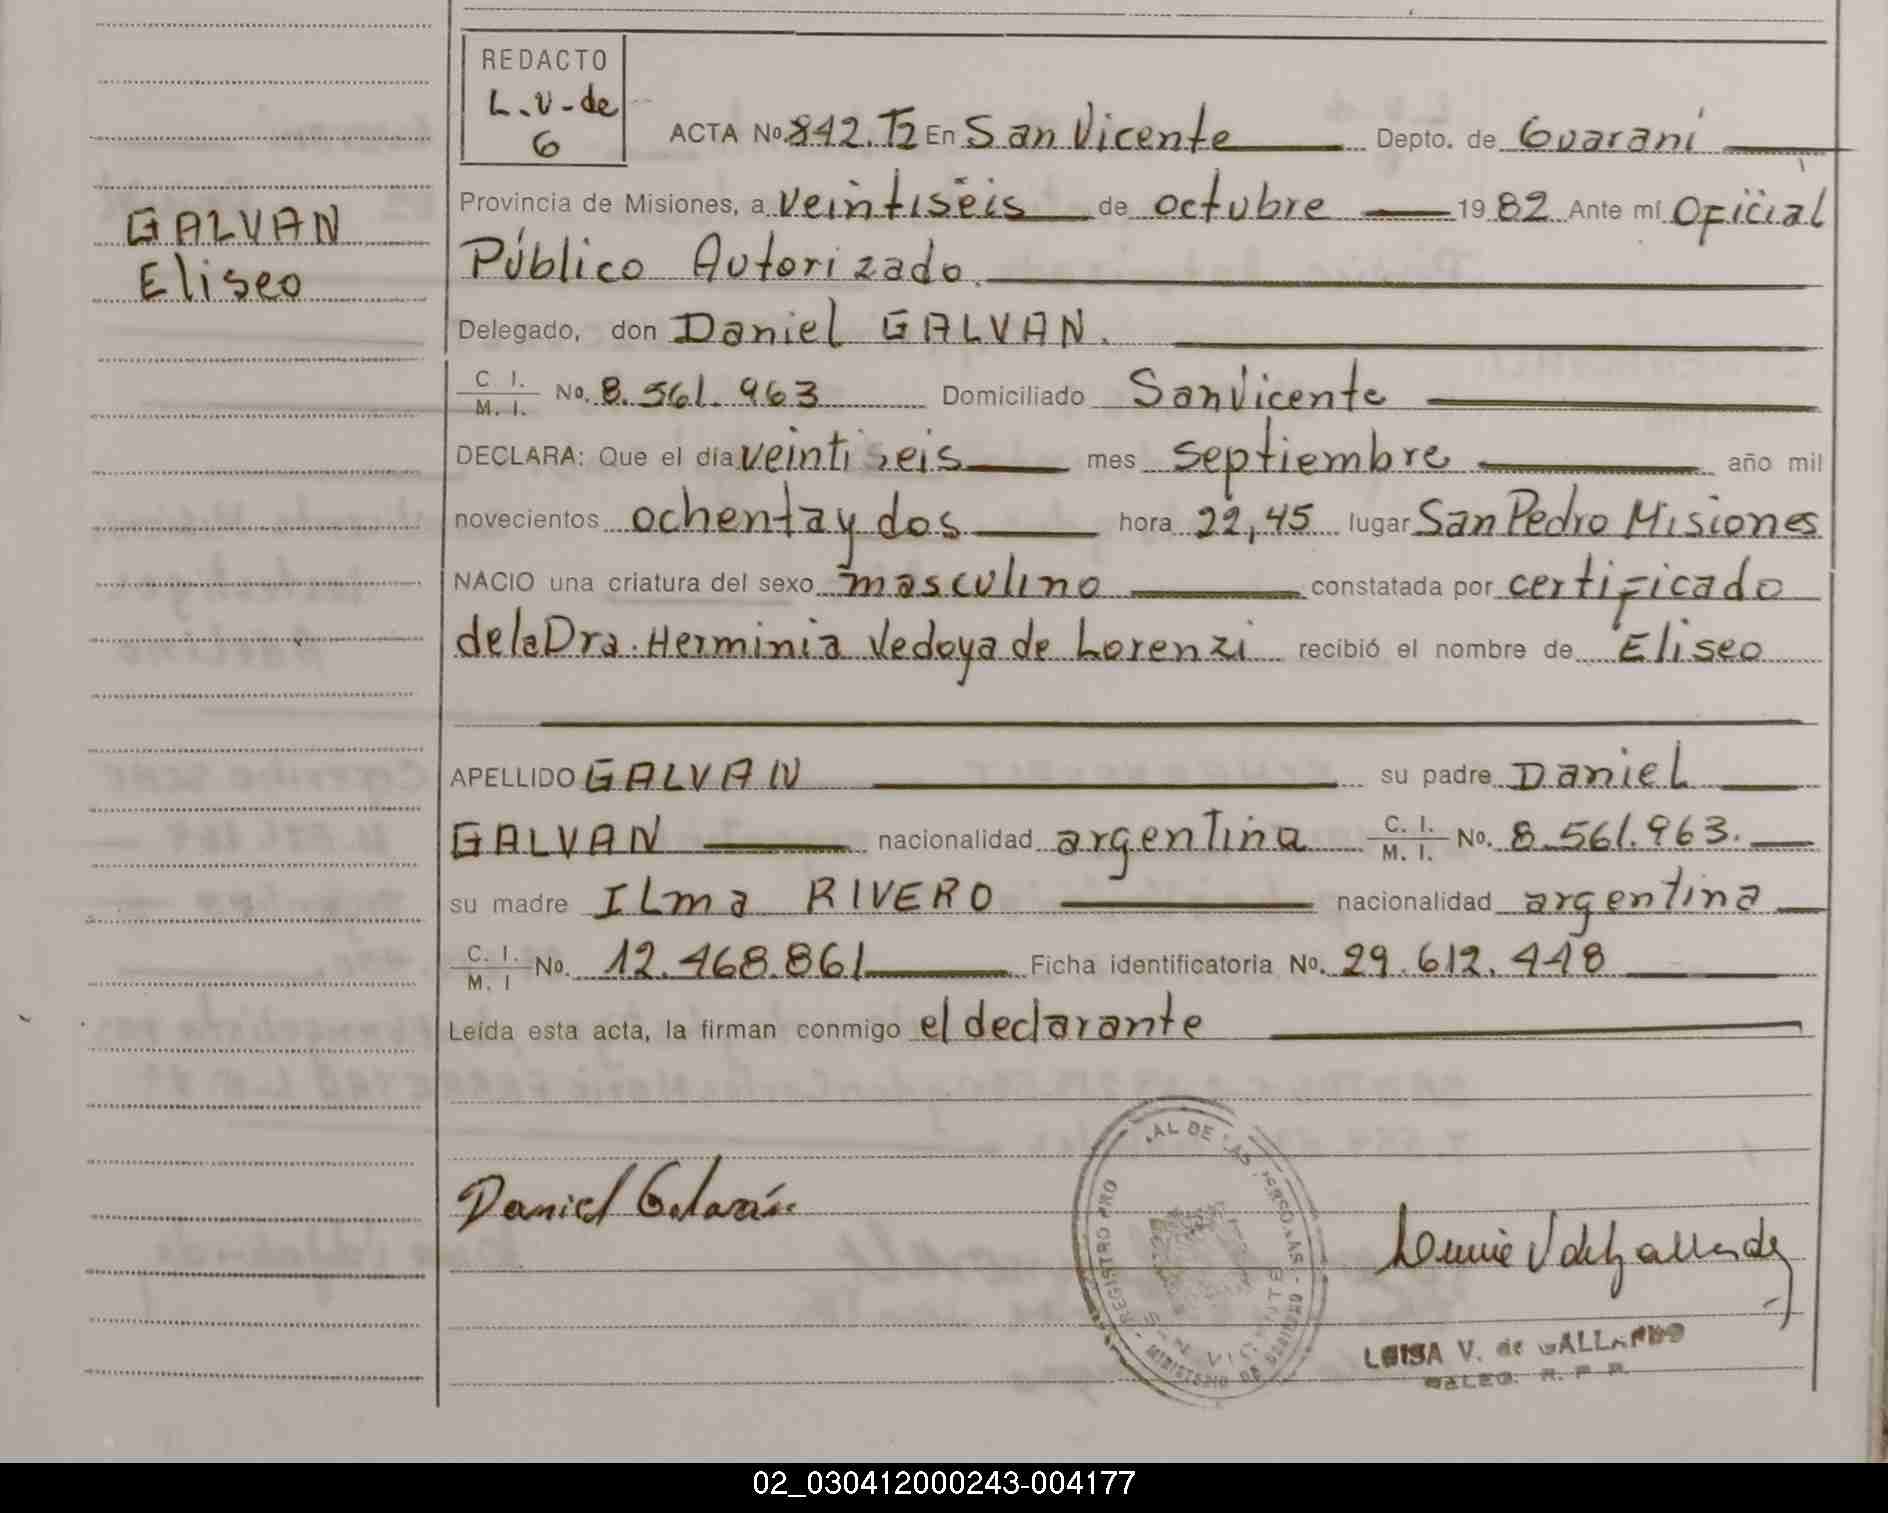 REDACTO
L.V-de
G
ACTA No. 842.T2 En San Vicente Depto. de Guaraní
Provincia de Misiones, a veintiseis de octubre 1982 Ante mí Oficial
Público Autorizado.
GALVAN
Eliseo
Delegado, don Daniel GALVAN.
C I. M. I. No. 8.561.963 Domiciliado San Vicente
DECLARA: Que el día veintiseis mes septiembre año mil
novecientos ochenta y dos hora 22,45 lugar San Pedro Misiones
NACIO una criatura del sexo masculino constatada por certificado
de la Dra. Herminia Vedoya de Lorenzi recibió el nombre de Eliseo
APELLIDO GALVAN su padre Daniel
GALVAN nacionalidad argentina C. I. M. I. No. 8.561.963.
su madre ILma RIVERO nacionalidad argentina
C. I. M. I No. 12.468.861 Ficha identificatoria No. 29.612.448
Leída esta acta, la firman conmigo el declarante
Daniel Galván
REGISTRO PRO AL DE LAS PERSONAS
SAN VICENTE
MINISTERIO DE GOBIERNO
LUISA V. de GALLARDO
02_030412000243-004177